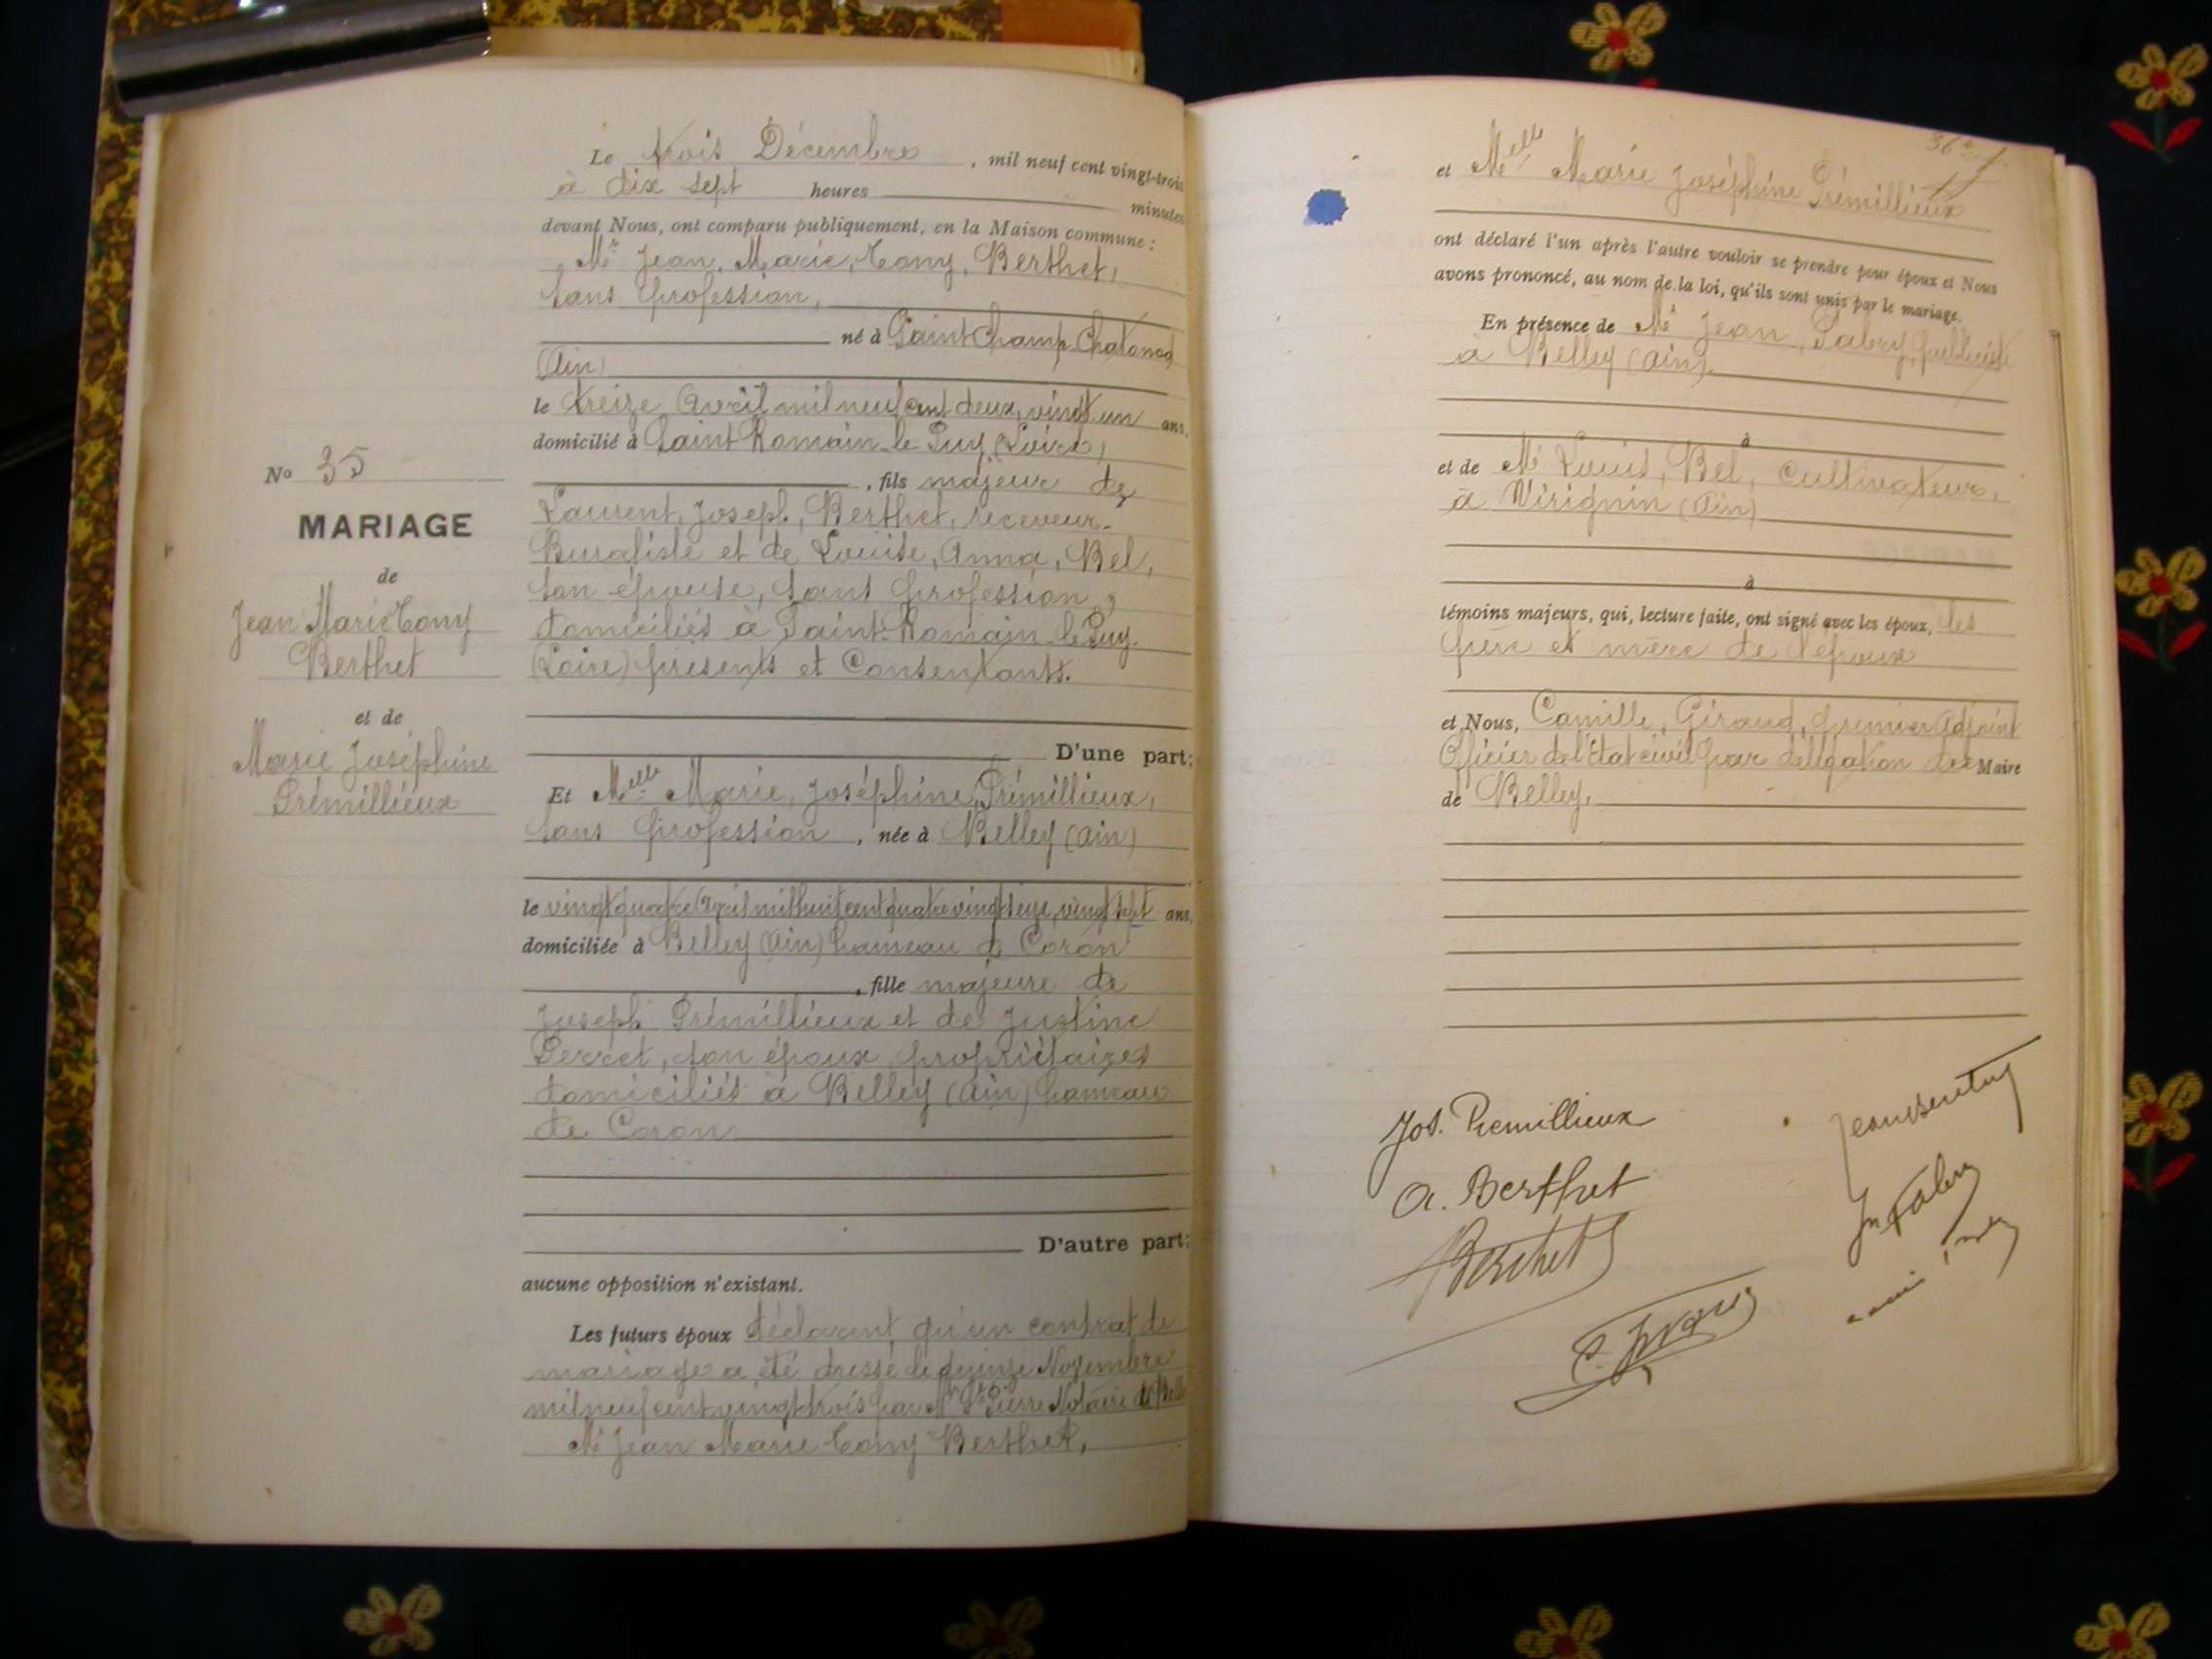 Le trois Décembre, mil neuf cent vingt-trois
à dix sept heures minutes
devant Nous, ont comparu publiquement, en la Maison commune :
Mr Jean, Marie, Tony, Berthet,
sans profession,
né à Saint Champ Chatonod
(Ain)
le treize Avril mil neuf cent deux, vingt un ans,
domicilié à Saint Romain-le Puy (Loire)
, fils majeur de
Laurent, Joseph, Berthet, receveur-
Buraliste et de Louise, Anna, Bel,
son épouse, sans profession,
domiciliés à Saint-Romain-le Puy
(Loire) présents et Consentants.
No 35
MARIAGE
de
Jean Marie Tony
Berthet
et de
Marie Joséphine
Prémillieux
D'une part;
Et Melle Marie, Joséphine, Prémillieux,
sans profession, née à Belley (Ain)
le vingt quatre Avril mil huit cent quatre vingt seize, vingt sept ans,
domiciliée à Belley (Ain) hameau de Coron
, fille majeure de
Joseph Prémillieux et de Justine
Perret, son époux propriétaires
domiciliés à Belley (Ain) hameau
de Coron
D'autre part;
aucune opposition n'existant.
Les futurs époux déclarent qu'un contrat de
mariage a été dressé le quinze Novembre
mil neuf cent vingt trois par Mr St Pierre Notaire à
Mr Jean Marie Tony Berthet,
et Melle Marie Joséphine Prémillieux
ont déclaré l'un après l'autre vouloir se prendre pour époux et Nous
avons prononcé, au nom de la loi, qu'ils sont unis par le mariage.
En présence de Mr Jean, Fabry, publiciste
à Belley (Ain).
à
et de Mr Louis, Bel, Cultivateur,
à Virignin (Ain)
à
témoins majeurs, qui, lecture faite, ont signé avec les époux, les
père et mère de l'époux
et Nous, Camille, Giraud, premier Adjoint
Officier de l'État civil par délégation du Maire
de Belley.
Jos. Premillieux
A. Berthet
Berthet
Jn Fabry